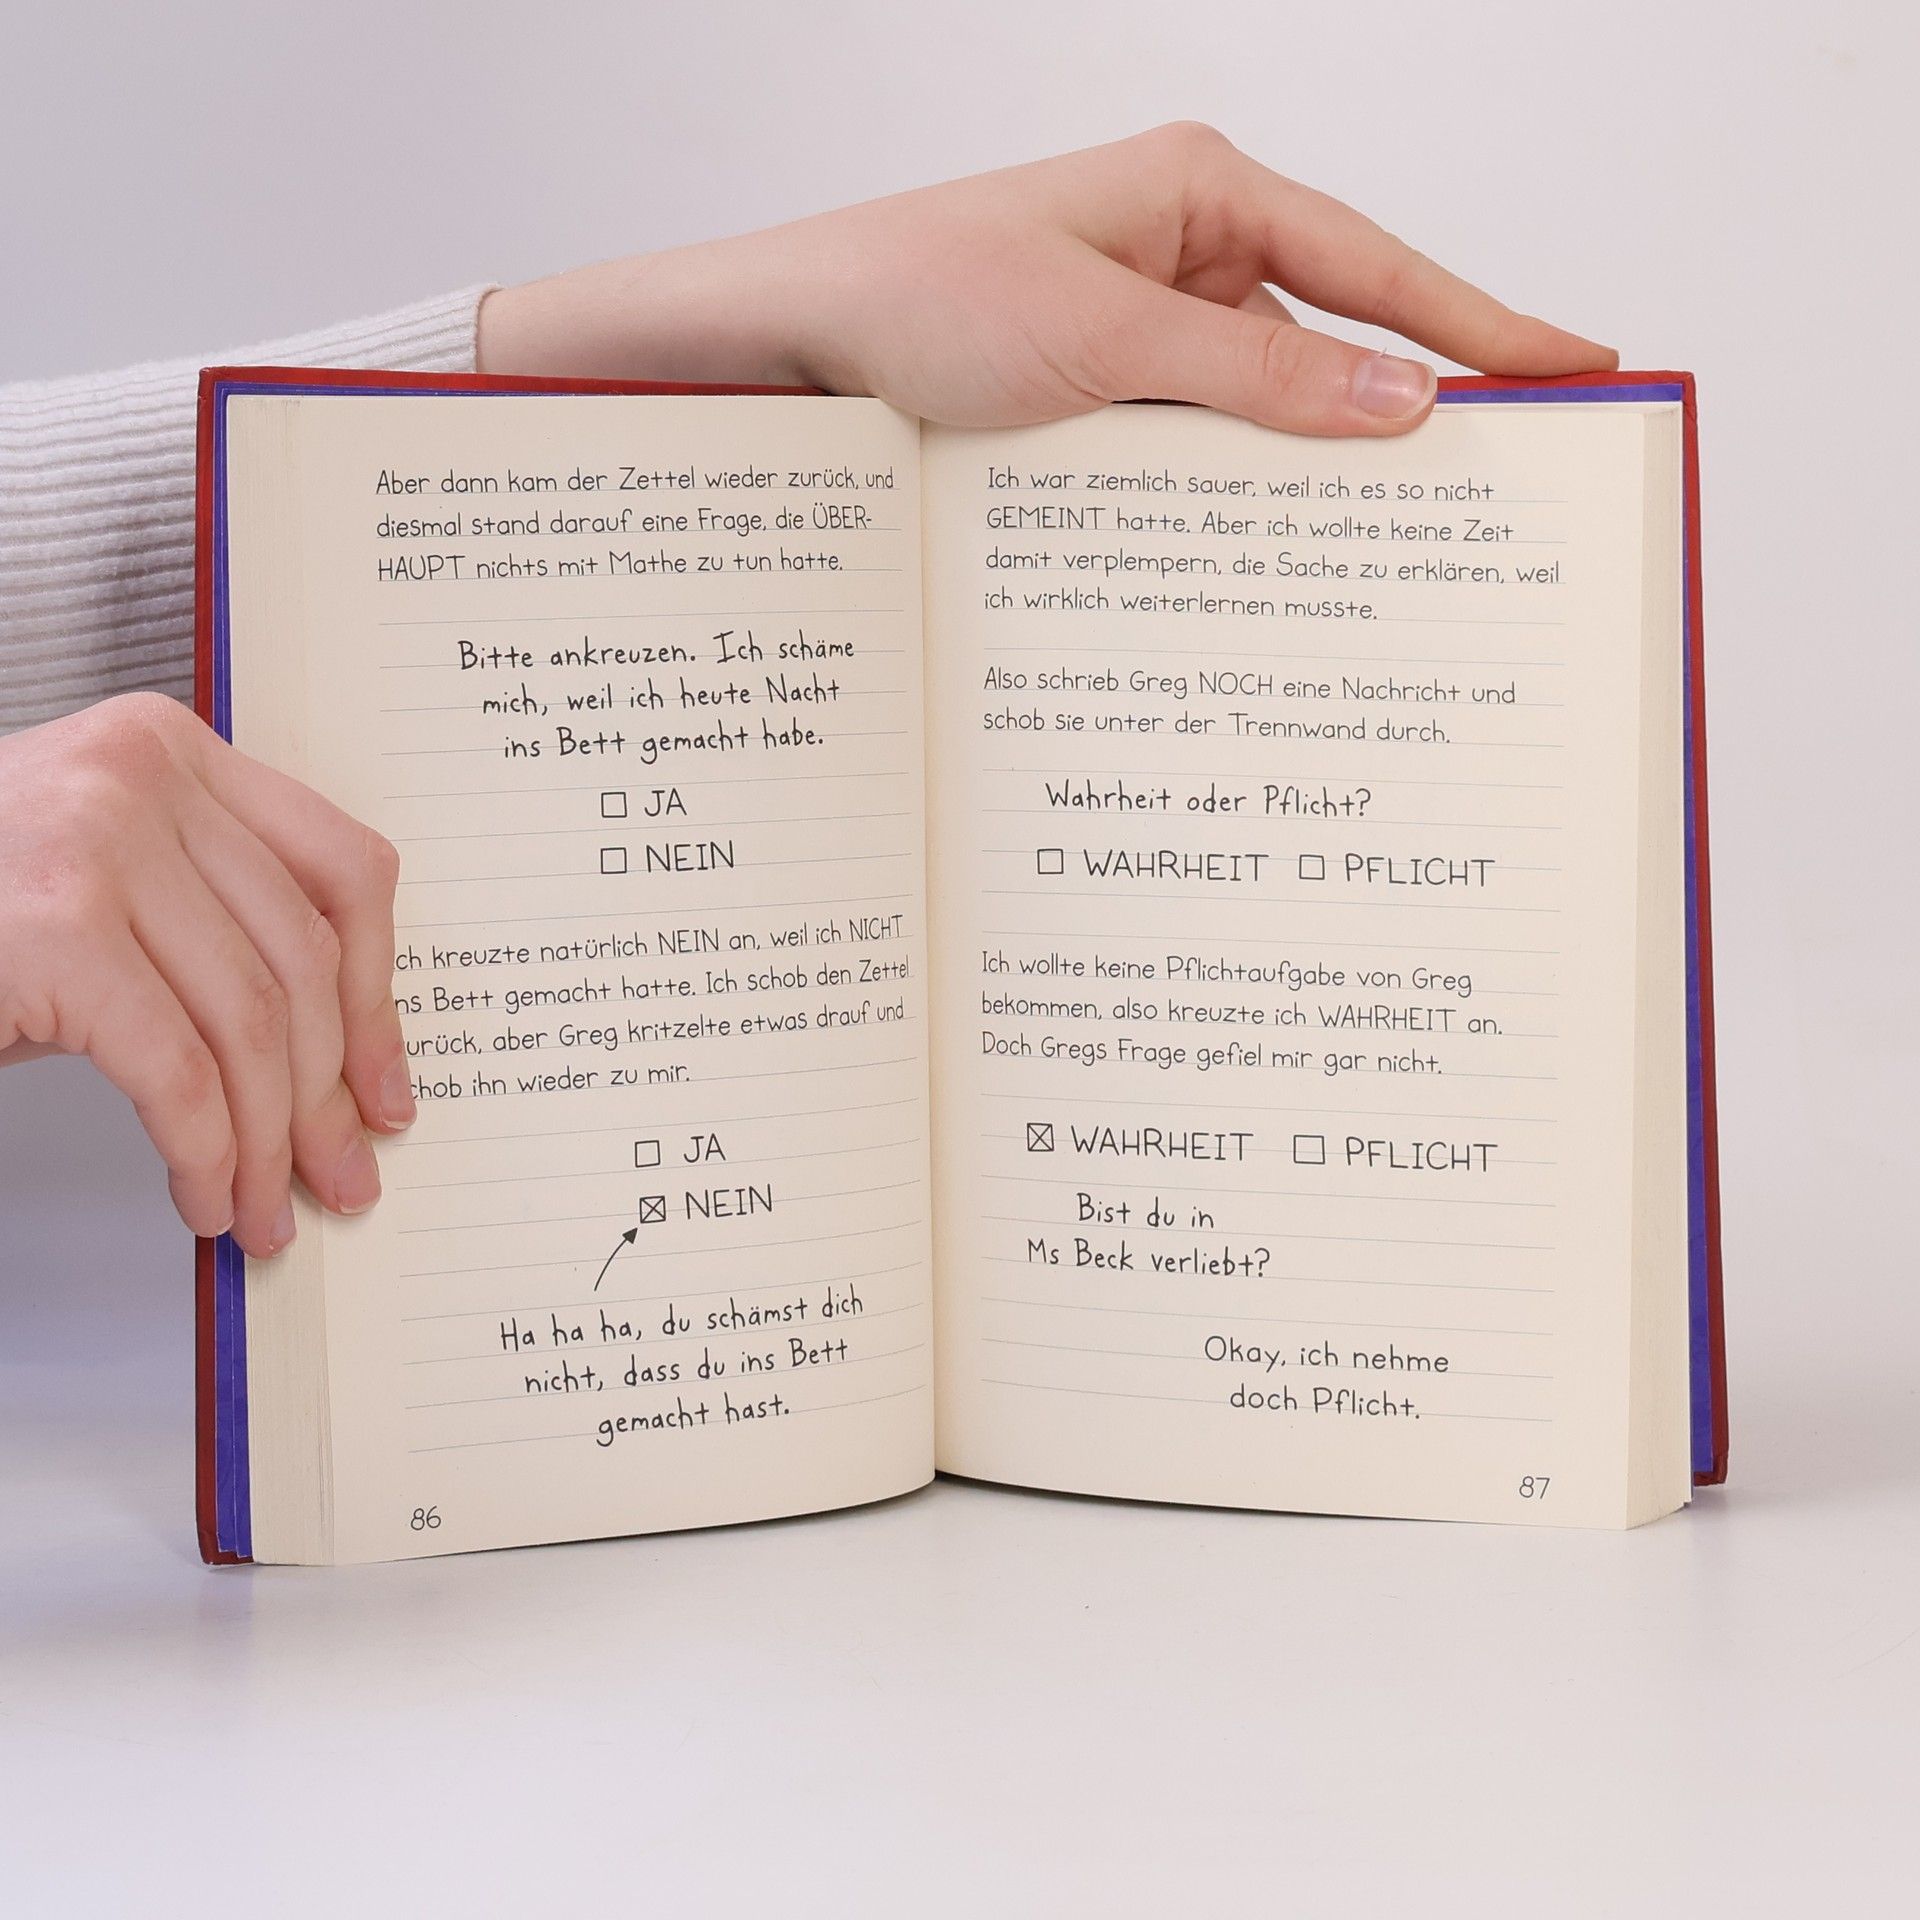 Aber dann kam der Zettel wieder zurück, und
diesmal stand darauf eine Frage, die ÜBER-
HAUPT nichts mit Mathe zu tun hatte.
Bitte ankreuzen. Ich schäme
mich, weil ich heute Nacht
ins Bett gemacht habe.
☐ JA
☐ NEIN
ch kreuzte natürlich NEIN an, weil ich NICHT
ns Bett gemacht hatte. Ich schob den Zettel
urück, aber Greg kritzelte etwas drauf und
chob ihn wieder zu mir.
☐ JA
☒ NEIN
Ha ha ha, du schämst dich
nicht, dass du ins Bett
gemacht hast.
86
Ich war ziemlich sauer, weil ich es so nicht
GEMEINT hatte. Aber ich wollte keine Zeit
damit verplempern, die Sache zu erklären, weil
ich wirklich weiterlernen musste.
Also schrieb Greg NOCH eine Nachricht und
schob sie unter der Trennwand durch.
Wahrheit oder Pflicht?
☐ WAHRHEIT ☐ PFLICHT
Ich wollte keine Pflichtaufgabe von Greg
bekommen, also kreuzte ich WAHRHEIT an.
Doch Gregs Frage gefiel mir gar nicht.
☒ WAHRHEIT ☐ PFLICHT
Bist du in
Ms Beck verliebt?
Okay, ich nehme
doch Pflicht.
87